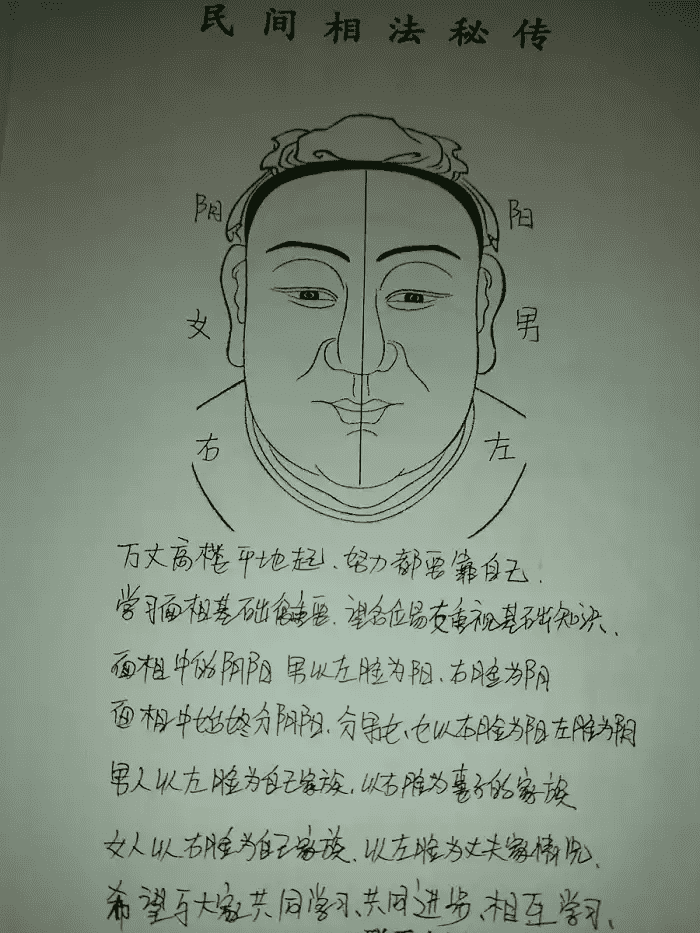 民间相法秘传
阴 阳
女 男
右 左
万丈高楼平地起、努力都要靠自己、
学习面相基础重要、望各位易友重视基础知识、
面相中的阴阳 男以左脸为阳、右脸为阴
面相中始终分阴阳、分男女、女以右脸为阳左脸为阴
男人以左脸为自己家族、以右脸为妻子的家族
女人以右脸为自己家族、以左脸为丈夫家情况、
希望与大家共同学习、共同进步、相互学习、